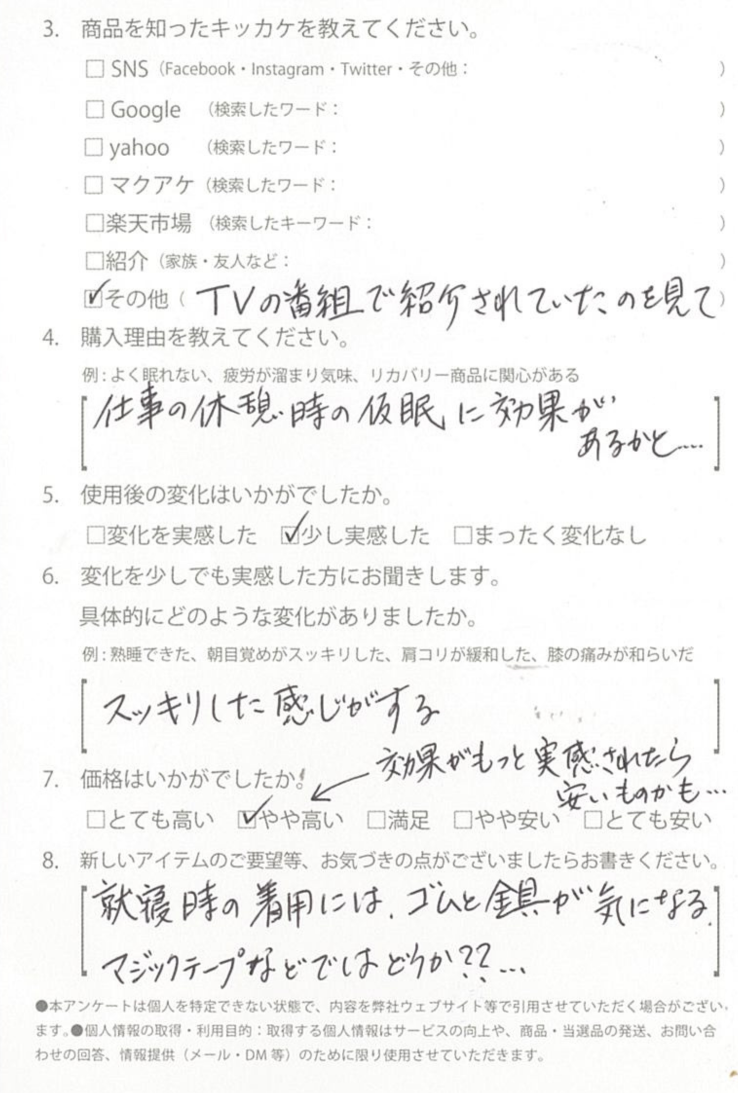 3. 商品を知ったキッカケを教えてください。
□ SNS（Facebook・Instagram・Twitter・その他： ）
□ Google （検索したワード： ）
□ yahoo （検索したワード： ）
□ マクアケ（検索したワード： ）
□楽天市場（検索したキーワード： ）
□紹介（家族・友人など： ）
☑その他（ TVの番組で紹介されていたのを見て）
4. 購入理由を教えてください。
例：よく眠れない、疲労が溜まり気味、リカバリー商品に関心がある
仕事の休憩時の仮眠に効果が
あるかと…
5. 使用後の変化はいかがでしたか。
□変化を実感した ☑少し実感した □まったく変化なし
6. 変化を少しでも実感した方にお聞きします。
具体的にどのような変化がありましたか。
例：熟睡できた、朝目覚めがスッキリした、肩コリが緩和した、膝の痛みが和らいだ
スッキリした感じがする
7. 価格はいかがでしたか。
効果がもっと実感されたら
安いものかも…
□とても高い ☑やや高い □満足 □やや安い □とても安い
8. 新しいアイテムのご要望等、お気づきの点がございましたらお書きください。
就寝時の着用には、ゴムと金具が気になる。
マジックテープなどではどうか??…
●本アンケートは個人を特定できない状態で、内容を弊社ウェブサイト等で引用させていただく場合がござい
ます。●個人情報の取得・利用目的：取得する個人情報はサービスの向上や、商品・当選品の発送、お問い合
わせの回答、情報提供（メール・DM 等）のために限り使用させていただきます。